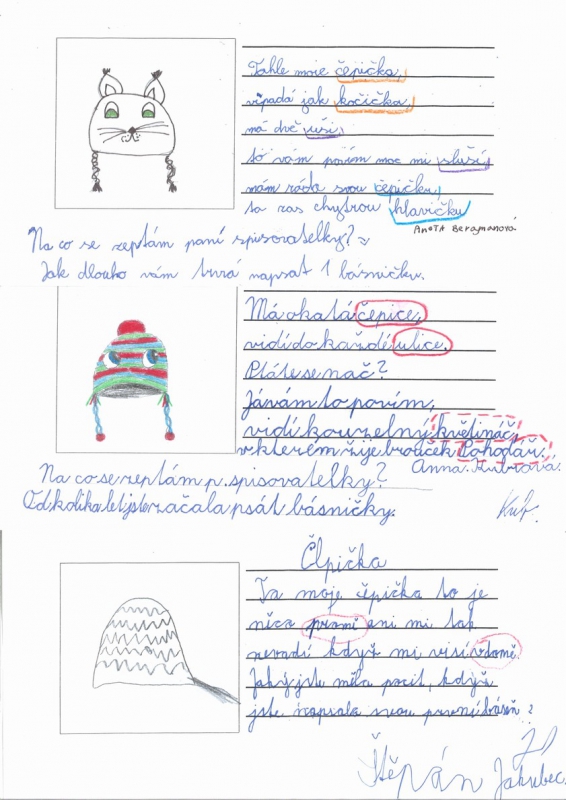 Tahle moje čepička,
vipadá jak kočička,
má dvě uši,
to vám povím moc mi sluší,
mám ráda svou čepičku,
ta zas chytrou hlavičku
Aneta Bergmanová
Na co se zeptám paní spisovatelky?
Jak dlouho vám trvá napsat 1 básničku.
Má okatá čepice,
vidí do každé ulice.
Ptáte se nač?
Já vám to povím,
vidí kouzelný květináč,
v kterém žije brouček Pohodář.
Anna Kubrová.
Na co se zeptám p. spisovatelky?
Od kolika let jste začala psát básničky.
Čepička
Ta moje čepička to je
něco ani mi tak
nevadí když mi visí v domě.
Jaký jste měla pocit, když
jste napsala svou první báseň?
Štěpán Jakubec